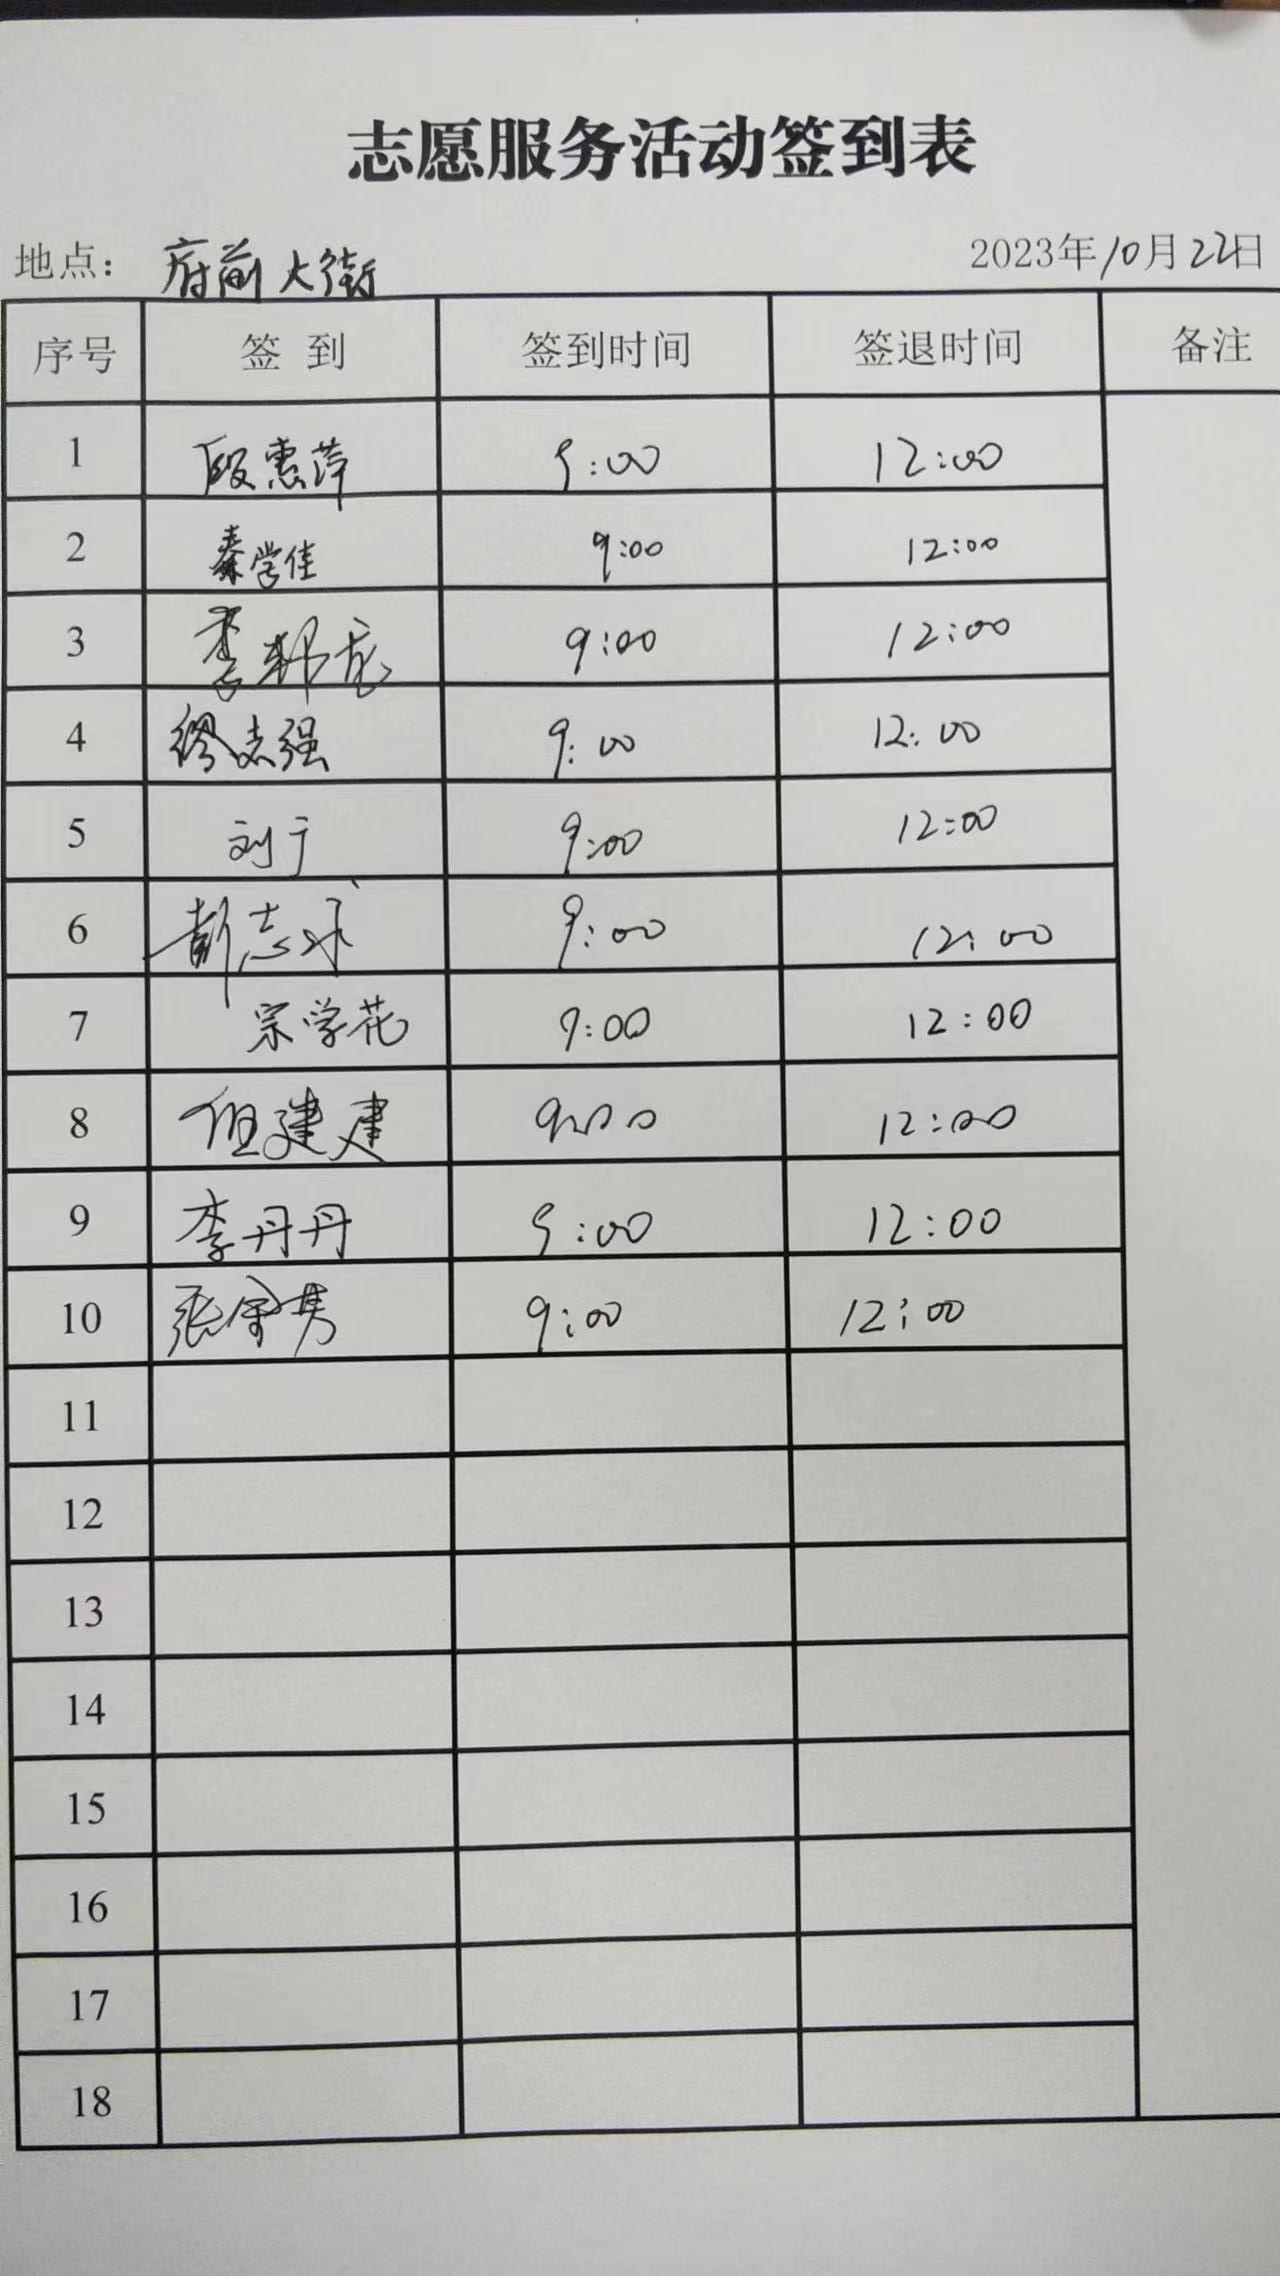 志愿服务活动签到表
地点：府前大街 2023年10月22日
序号 签到 签到时间 签退时间 备注
1 段惠萍 9:00 12:00
2 秦学佳 9:00 12:00
3 李韩龙 9:00 12:00
4 缪志强 9:00 12:00
5 刘宁 9:00 12:00
6 彭志成 9:00 12:00
7 宗学花 9:00 12:00
8 但建建 9:00 12:00
9 李丹丹 9:00 12:00
10 张 男 9:00 12:00
11
12
13
14
15
16
17
18